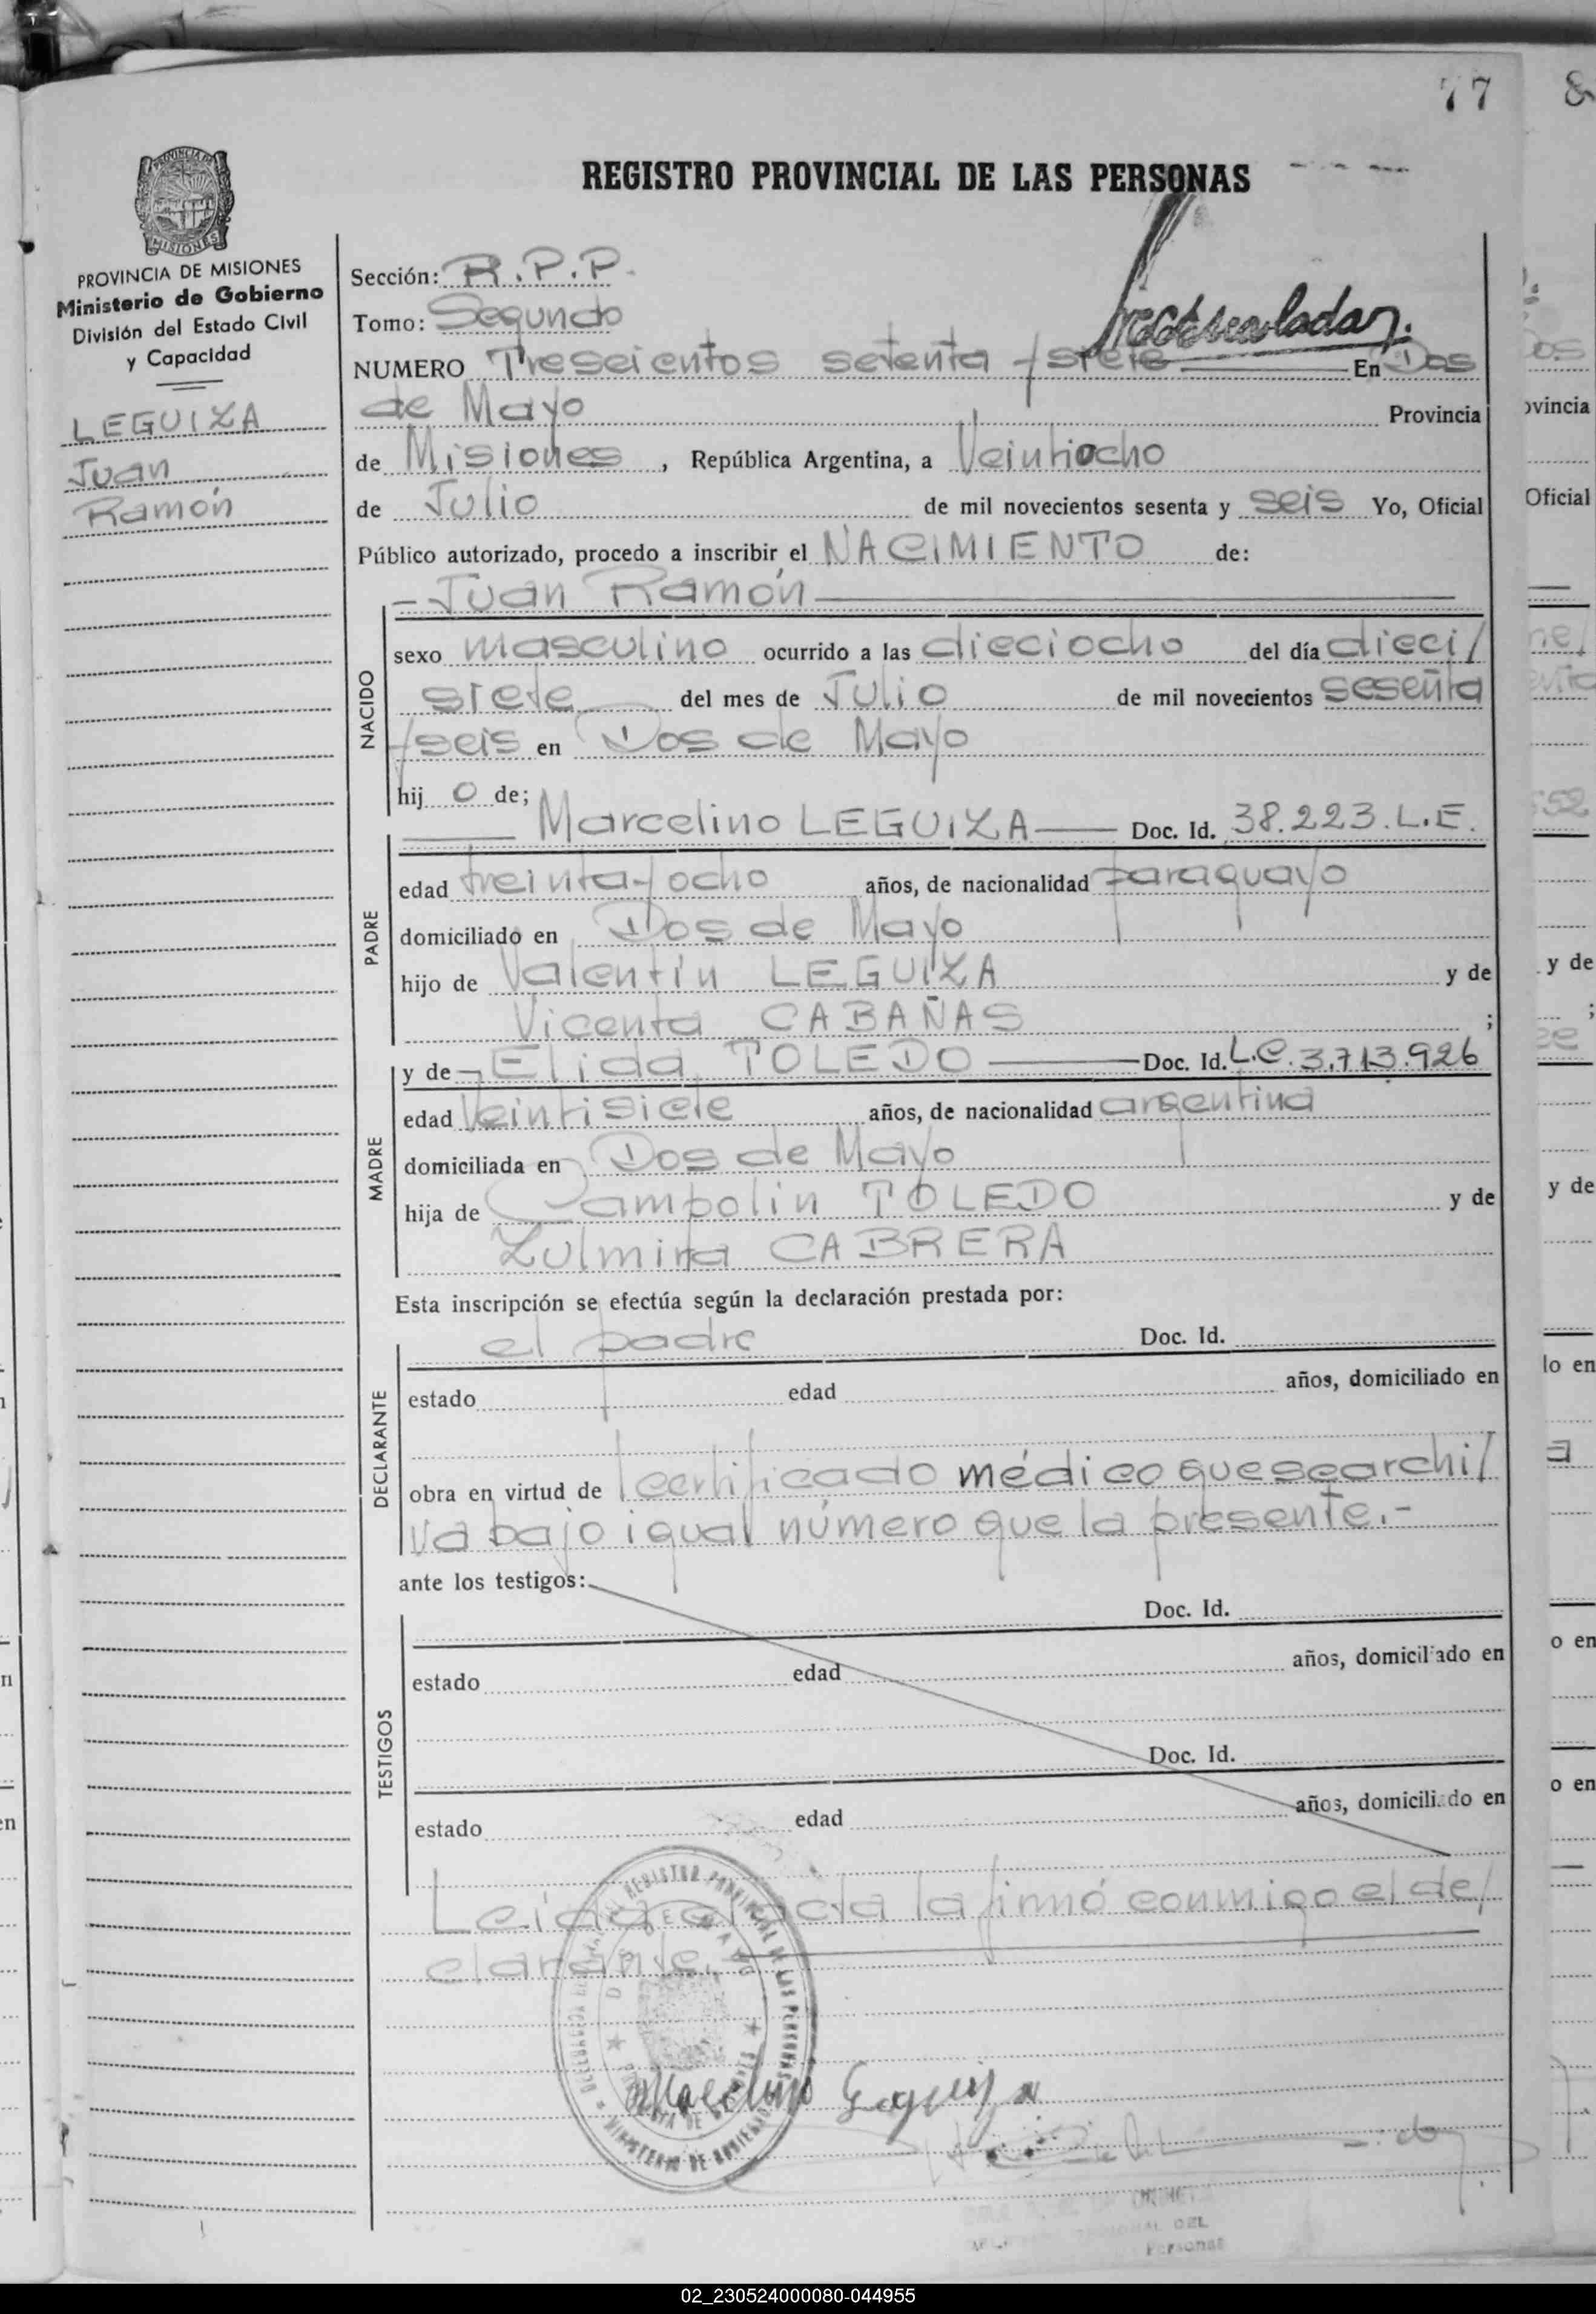 77
REGISTRO PROVINCIAL DE LAS PERSONAS
PROVINCIA DE MISIONES
MISIONES
PROVINCIA DE MISIONES
Ministerio de Gobierno
División del Estado Civil
y Capacidad
LEGUIZA
Juan
Ramón
Sección: R.P.P.
Tomo: Segundo
NUMERO Trescientos setenta y siete En Dos
de Mayo Provincia
de Misiones, República Argentina, a Veintiocho
de Julio de mil novecientos sesenta y seis Yo, Oficial
Público autorizado, procedo a inscribir el NACIMIENTO de:
- Juan Ramón
NACIDO
sexo masculino ocurrido a las dieciocho del día dieci/
siete del mes de Julio de mil novecientos sesenta
y seis en Dos de Mayo
hij o de;
Marcelino LEGUIZA Doc. Id. 38.223.L.E.
PADRE
edad treinta y ocho años, de nacionalidad paraguayo
domiciliado en Dos de Mayo
hijo de Valentín LEGUIZA y de
Vicenta CABAÑAS ;
y de Elida TOLEDO Doc. Id. L.C. 3.713.926
MADRE
edad Veintisiete años, de nacionalidad argentina
domiciliada en Dos de Mayo
hija de Pampolin TOLEDO y de
Zulmira CABRERA
Esta inscripción se efectúa según la declaración prestada por:
el padre Doc. Id.
DECLARANTE
estado edad años, domiciliado en
obra en virtud de certificado médico que se archi/
va bajo igual número que la presente.-
ante los testigos:
Doc. Id.
TESTIGOS
estado edad años, domiciliado en
Doc. Id.
estado edad años, domiciliado en
Leída el acta la firmó conmigo el de/
clarante.
REGISTRO PROVINCIAL DE LAS PERSONAS
MINISTERIO DE GOBIERNO
Marcelino Leguiza
02_230524000080-044955